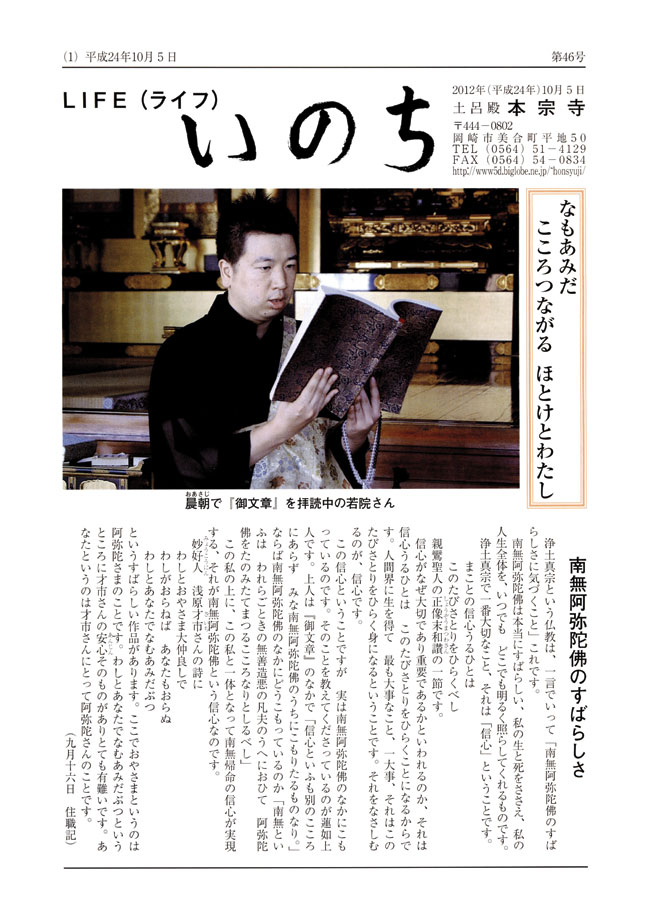 (1) 平成24年10月5日
第46号
LIFE（ライフ）
いのち
2012年（平成24年）10月5日
土呂殿 本宗寺
〒444－0802
岡崎市美合町平地50
TEL (0564) 51－4129
FAX (0564) 54－0834
http://www5d.biglobe.ne.jp/~honsyuji/
なもあみだ
こころつながる ほとけとわたし
晨朝で『御文章』を拝読中の若院さん
おあさじ
南無阿弥陀佛のすばらしさ
浄土真宗という仏教は、一言でいって「南無阿弥陀佛のすば
らしさに気づくこと」これです。
南無阿弥陀佛は本当にすばらしい、私の生と死をささえ、私の
人生全体を、いつでも どこでも明るく照らしてくれるものです。
浄土真宗で一番大切なこと、それは「信心」ということです。
まことの信心うるひとは
このたびさとりをひらくべし
親鸞聖人の正像末和讃の一節です。
信心がなぜ大切であり重要であるかといわれるのか、それは
信心うるひとは このたびさとりをひらくことになるからで
す。人間界に生を得て 最も大事なこと、一大事、それはこの
たびさとりをひらく身になるということです。それをなさしむ
るのが、信心です。
この信心ということですが 実は南無阿弥陀佛のなかにこも
っているのです。そのことを教えてくださっているのが蓮如上
人です。上人は『御文章』のなかで「信心といふも別のこころ
にあらず みな南無阿弥陀佛のうちにこもりたるものなり。」
ならば南無阿弥陀佛のなかにどうこもっているのか「南無とい
ふは われらごときの無善造悪の凡夫のうへにおひて 阿弥陀
佛をたのみたてまつるこころなりとしるべし」
この私の上に、この私と一体となって南無帰命の信心が実現
する、それが南無阿弥陀佛という信心なのです。
妙好人 浅原才市さんの詩に
わしとおやさま大仲良しで
わしがおらねば あなたもおらぬ
わしとあなたでなむあみだぶつ
というすばらしい作品があります。ここでおやさまというのは
阿弥陀さまのことです。わしとあなたでなむあみだぶつという
ところに才市さんの安心そのものがありとても有難いです。あ
なたというのは才市さんにとって阿弥陀さんのことです。
（九月十六日 住職記）